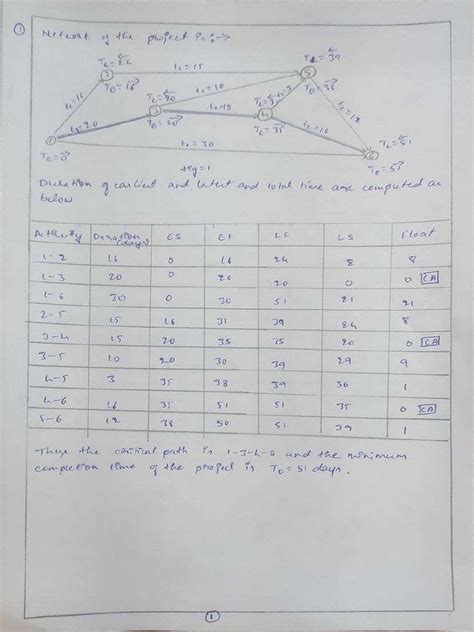 ① Network of the project is :→
TL = 24
te = 15
TL = 39
2
5
TE = 16
te = 16
TL = 20
te = 10
te = 3
TE = 38
te = 12
3
te = 15
4
te = 20
TE = 20
TE = 35
te = 16
TL = 51
1
te = 30
6
TE = 0
TE = 51
fig = 1
Duration of earliest and latest and total time are computed as
below
Activity Duration (days) ES EF LF LS Float
1-2 16 0 16 24 8 8
1-3 20 0 20 20 0 0 CA
1-6 30 0 30 51 21 21
2-5 15 16 31 39 24 8
3-4 15 20 35 35 20 0 CA
3-5 10 20 30 39 29 9
4-5 3 35 38 39 36 1
4-6 16 35 51 51 35 0 CA
5-6 12 38 50 51 39 1
Thus the critical path is 1-3-4-6 and the minimum
completion time of the project is TE = 51 days.
1